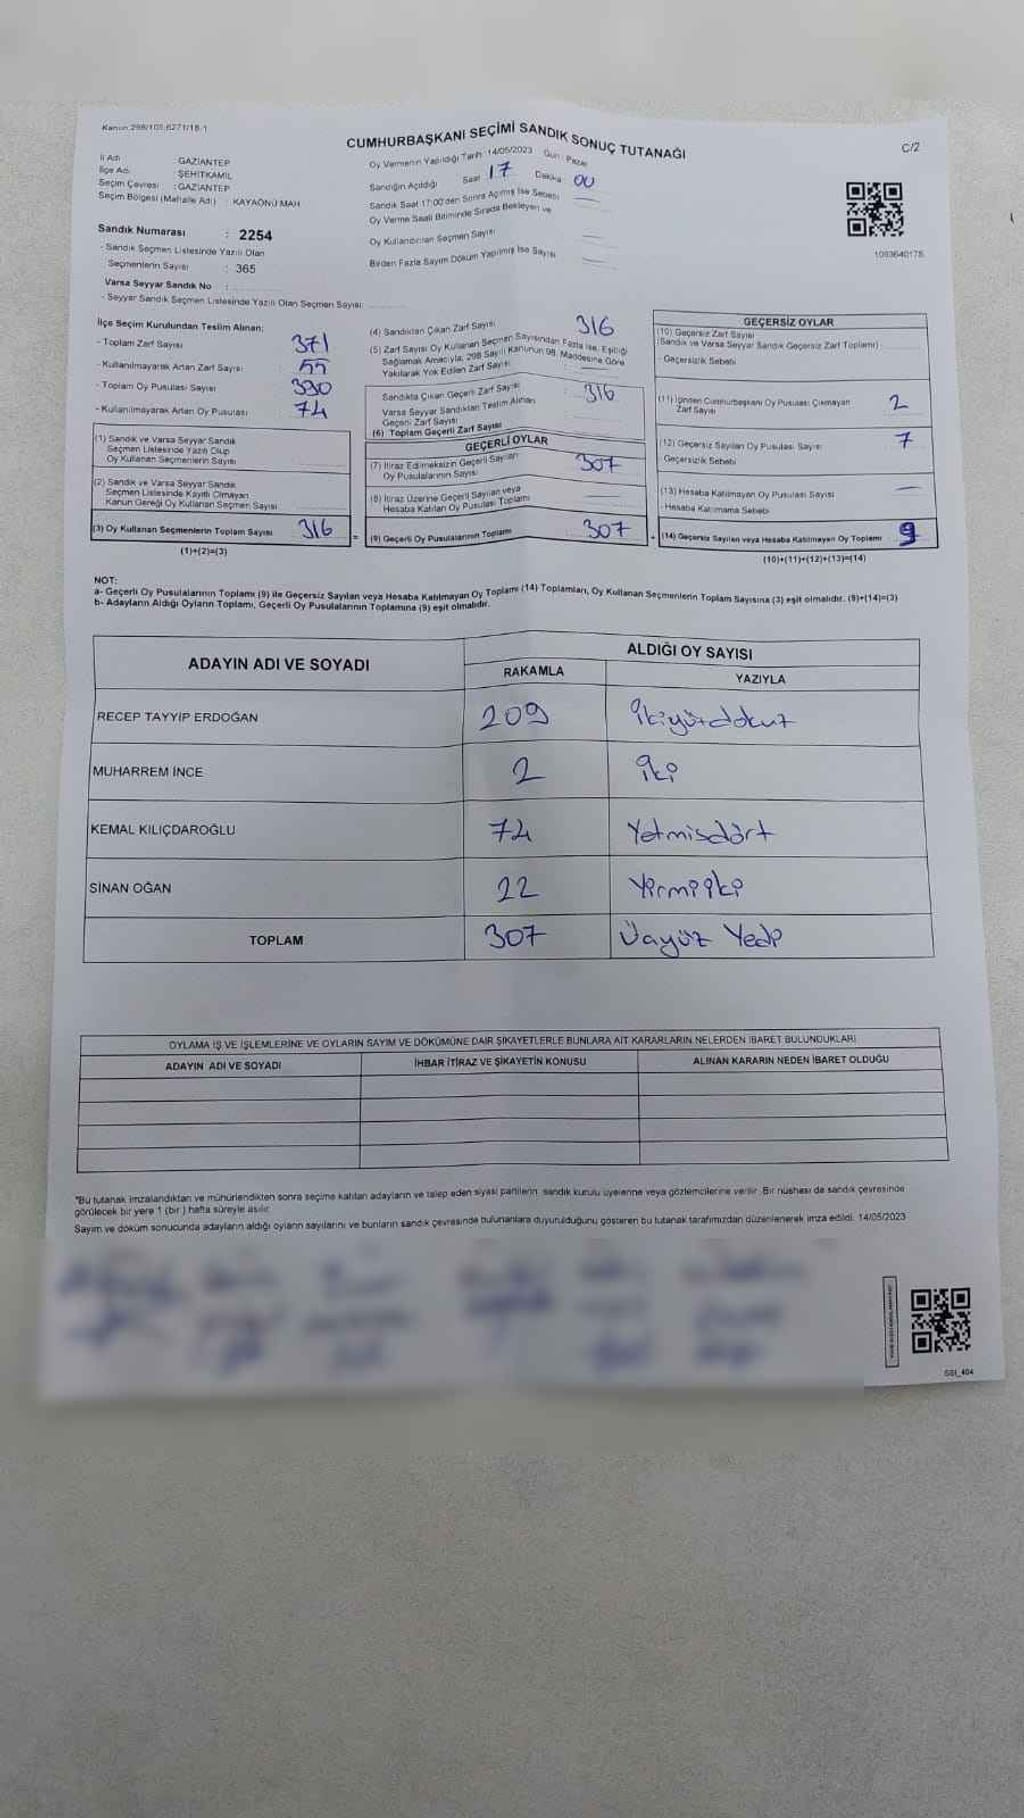 Kanun:298/105,6271/18-1
CUMHURBAŞKANI SEÇİMİ SANDIK SONUÇ TUTANAĞI
C/2
İl Adı : GAZİANTEP
İlçe Adı : ŞEHİTKAMİL
Seçim Çevresi : GAZİANTEP
Seçim Bölgesi (Mahalle Adı) : KAYAÖNÜ MAH
Oy Vermenin Yapıldığı Tarih :14/05/2023 Gün: Pazar
Sandığın Açıldığı Saat 17 Dakika 00
Sandık Saat 17:00'den Sonra Açılmış İse Sebebi
Oy Verme Saati Bitiminde Sırada Bekleyen ve
Oy Kullandırılan Seçmen Sayısı
Birden Fazla Sayım Döküm Yapılmış İse Sayısı
1093640178
Sandık Numarası : 2254
- Sandık Seçmen Listesinde Yazılı Olan
Seçmenlerin Sayısı : 365
Varsa Seyyar Sandık No :
- Seyyar Sandık Seçmen Listesinde Yazılı Olan Seçmen Sayısı:
İlçe Seçim Kurulundan Teslim Alınan;
- Toplam Zarf Sayısı : 371
- Kullanılmayarak Artan Zarf Sayısı : 55
- Toplam Oy Pusulası Sayısı : 390
- Kullanılmayarak Artan Oy Pusulası : 74
(1) Sandık ve Varsa Seyyar Sandık
Seçmen Listesinde Yazılı Olup
Oy Kullanan Seçmenlerin Sayısı
(2) Sandık ve Varsa Seyyar Sandık
Seçmen Listesinde Kayıtlı Olmayan
Kanun Gereği Oy Kullanan Seçmen Sayısı
(3) Oy Kullanan Seçmenlerin Toplam Sayısı 316
(1)+(2)=(3)
(4) Sandıktan Çıkan Zarf Sayısı 316
(5) Zarf Sayısı Oy Kullanan Seçmen Sayısından Fazla İse, Eşitliği
Sağlamak Amacıyla; 298 Sayılı Kanunun 98. Maddesine Göre
Yakılarak Yok Edilen Zarf Sayısı
Sandıkta Çıkan Geçerli Zarf Sayısı : 316
Varsa Seyyar Sandıktan Teslim Alınan
Geçerli Zarf Sayısı
(6) Toplam Geçerli Zarf Sayısı
GEÇERLİ OYLAR
(7) İtiraz Edilmeksizin Geçerli Sayılan
Oy Pusulalarının Sayısı 307
(8) İtiraz Üzerine Geçerli Sayılan veya
Hesaba Katılan Oy Pusulası Toplamı
(9) Geçerli Oy Pusulalarının Toplamı 307
GEÇERSİZ OYLAR
(10) Geçersiz Zarf Sayısı
(Sandık ve Varsa Seyyar Sandık Geçersiz Zarf Toplamı)
- Geçersizlik Sebebi
(11) İçinden Cumhurbaşkanı Oy Pusulası Çıkmayan
Zarf Sayısı 2
(12) Geçersiz Sayılan Oy Pusulası Sayısı 7
Geçersizlik Sebebi
(13) Hesaba Katılmayan Oy Pusulası Sayısı
- Hesaba Katılmama Sebebi
(14) Geçersiz Sayılan veya Hesaba Katılmayan Oy Toplamı 9
(10)+(11)+(12)+(13)=(14)
NOT:
a- Geçerli Oy Pusulalarının Toplamı (9) ile Geçersiz Sayılan veya Hesaba Katılmayan Oy Toplamı (14) Toplamları, Oy Kullanan Seçmenlerin Toplam Sayısına (3) eşit olmalıdır. (9)+(14)=(3)
b- Adayların Aldığı Oyların Toplamı, Geçerli Oy Pusulalarının Toplamına (9) eşit olmalıdır.
ADAYIN ADI VE SOYADI
ALDIĞI OY SAYISI
RAKAMLA YAZIYLA
RECEP TAYYİP ERDOĞAN 209 İkiyüzdokuz
MUHARREM İNCE 2 iki
KEMAL KILIÇDAROĞLU 74 Yetmisdört
SİNAN OĞAN 22 Yirmiiki
TOPLAM 307 Üçyüz Yedi
OYLAMA İŞ VE İŞLEMLERİNE VE OYLARIN SAYIM VE DÖKÜMÜNE DAİR ŞİKAYETLERLE BUNLARA AİT KARARLARIN NELERDEN İBARET BULUNDUKLARI
ADAYIN ADI VE SOYADI İHBAR İTİRAZ VE ŞİKAYETİN KONUSU ALINAN KARARIN NEDEN İBARET OLDUĞU
*Bu tutanak imzalandıktan ve mühürlendikten sonra seçime katılan adayların ve talep eden siyasi partilerin sandık kurulu üyelerine veya gözlemcilerine verilir. Bir nüshası da sandık çevresinde
görülecek bir yere 1 (bir ) hafta süreyle asılır.
Sayım ve döküm sonucunda adayların aldığı oyların sayılarını ve bunların sandık çevresinde bulunanlara duyurulduğunu gösteren bu tutanak tarafımızdan düzenlenerek imza edildi. 14/05/2023